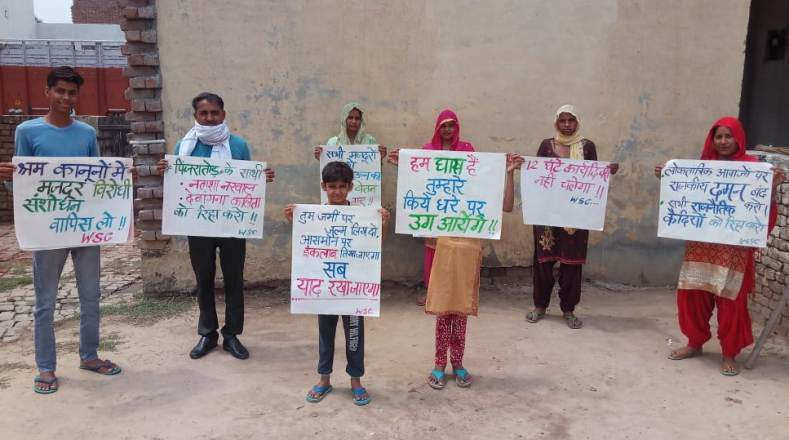 श्रम कानूनों में
मजदूर विरोधी
संशोधन
वापिस लो !!
WSC
पिंजरातोड़ के साथी
नताशा नरवाल
देवांगना कालिता
को रिहा करो !!
WSC
सभी मजदूरों
वेतन
तुम जमीं पर
जुल्म लिख दो,
आसमान पर
इंकलाब लिखा जाएगा
सब
याद रखा जाएगा
WSC
हम घास हैं
तुम्हारे
किये धरे पर
उग आयेंगे !!
WSC
12 घंटे कार्यदिवस
नहीं चलेगा !!
WSC
लोकतांत्रिक आवाजों पर
राजकीय दमन बंद
करो।
सभी राजनैतिक
कैदियों को रिहा करो।
WSC